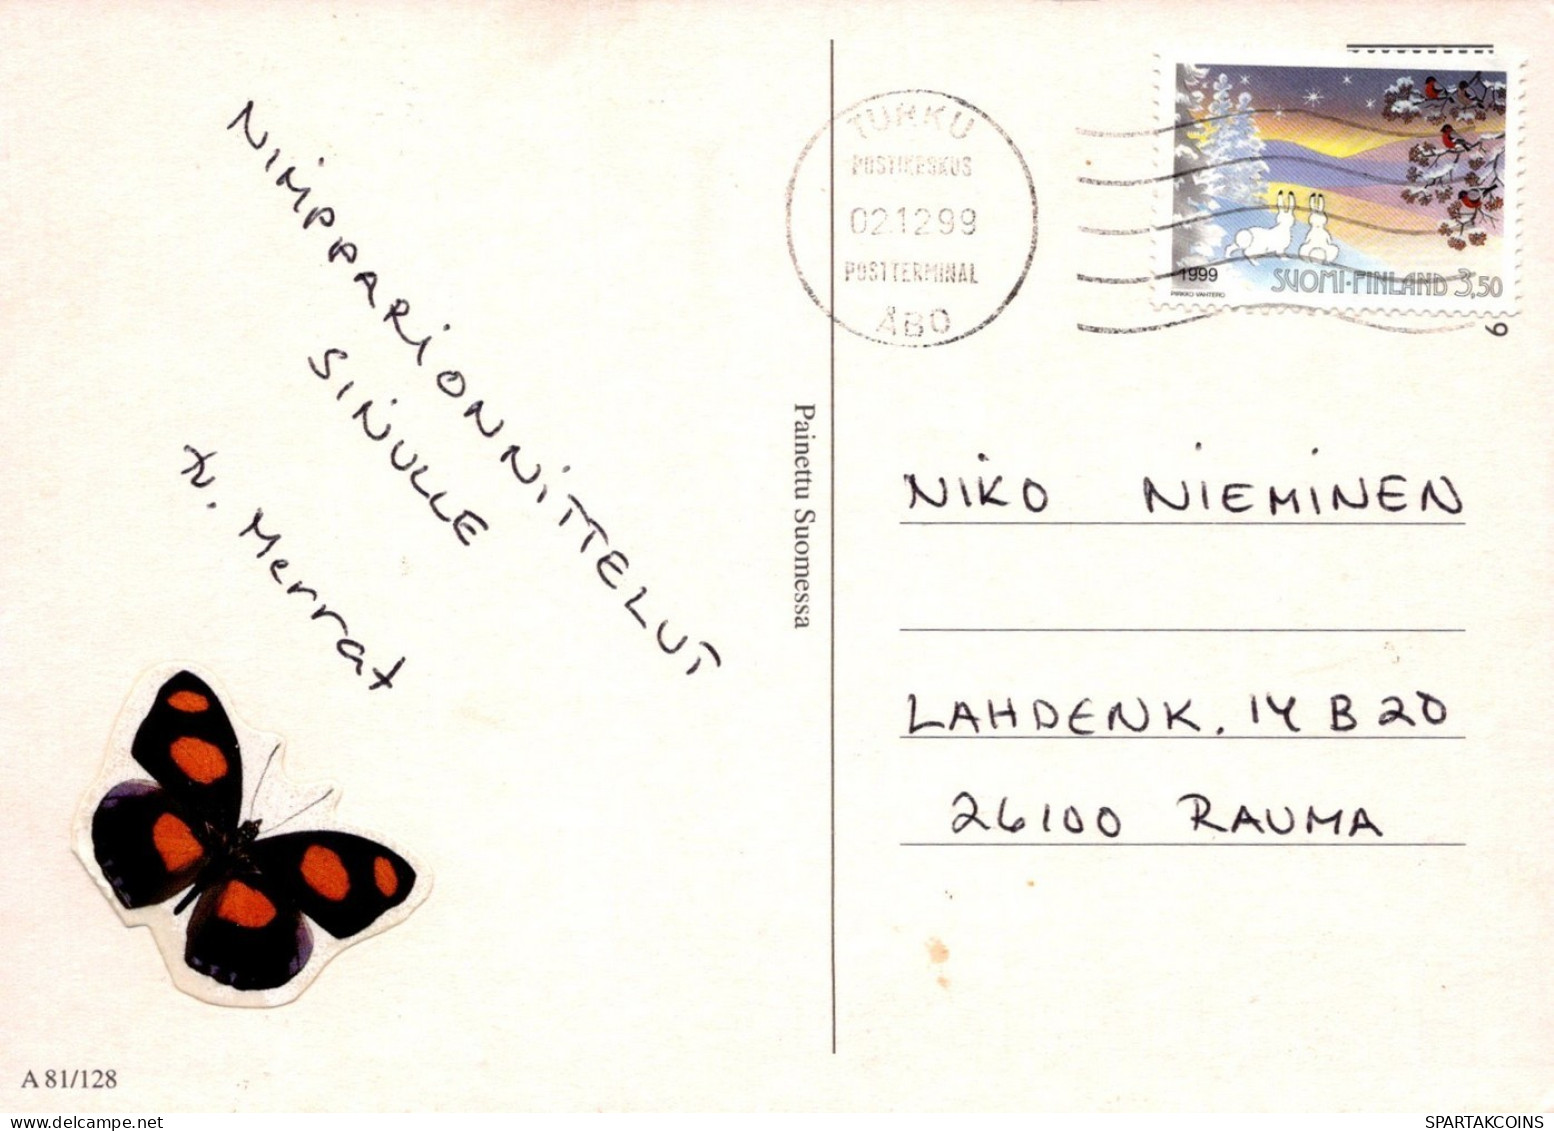 NIMPPARIONNITTELUT
SINULLE
T. Merrat
A 81/128
Painettu Suomessa
TURKU
POSTIKESKUS
02.12.99
POSTTERMINAL
ÅBO
1999
PIRKKO VAHTERO
SUOMI-FINLAND 3,50
9
NIKO NIEMINEN
LAHDENK. 14 B 20
26100 RAUMA
SPARTAKCOINS